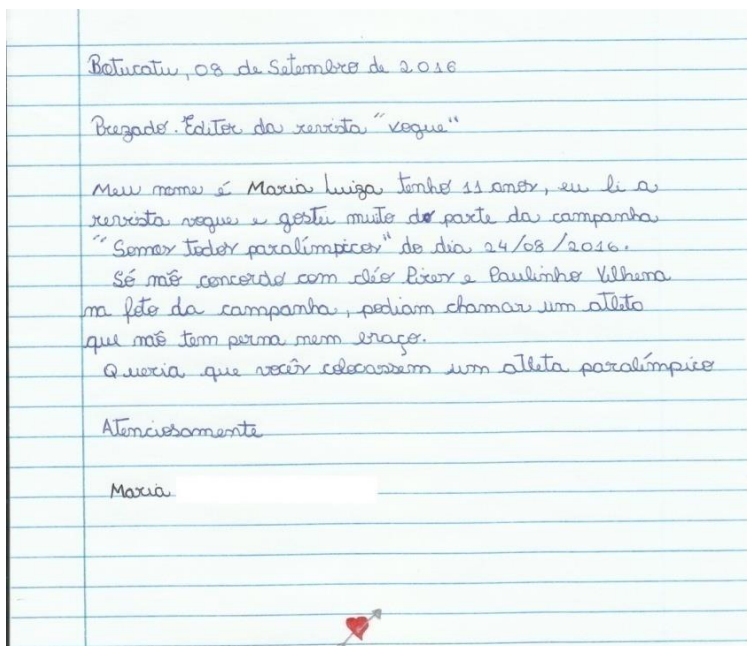 Botucatu, 08 de Setembro de 2016
Prezado. Editor da revista "vogue"
Meu nome é Maria Luiza tenho 11 anos, eu li a
revista vogue e gostei muito do parte da campanha
"Somos todos paralímpicos" do dia 24/08/2016.
Só não concordo com cléo Pires e Paulinho Vilhena
na foto da campanha, podiam chamar um atleto
que não tem perna nem braço.
Queria que vocês colocassem um atleta paralímpico
Atenciosamente
Maria